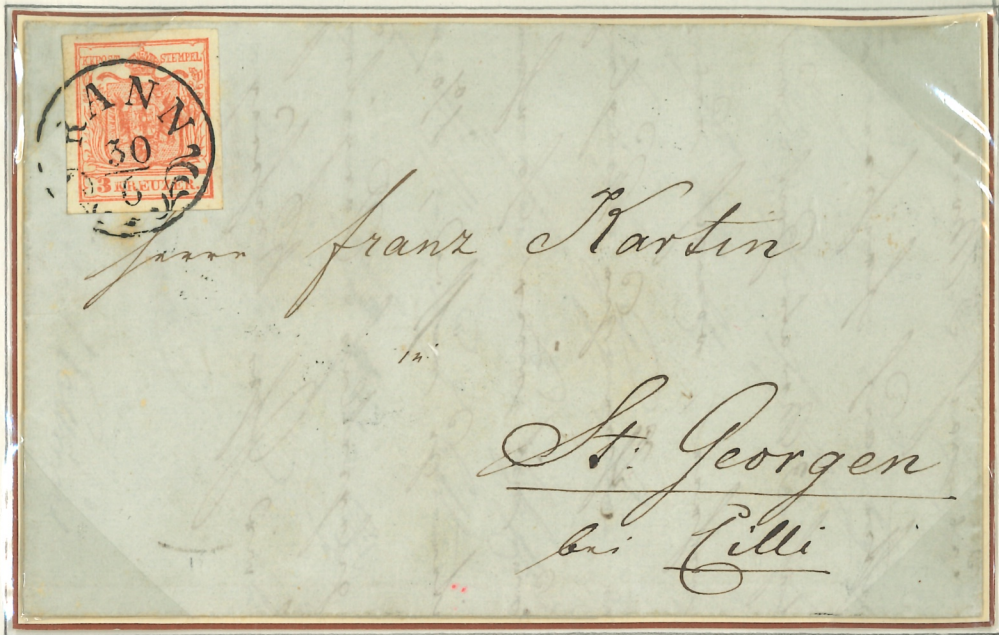 K.K.POST-STEMPEL
RANN
30
5
3 KREUZER
Herrn Franz Kartin
in
St: Georgen
bei Cilli